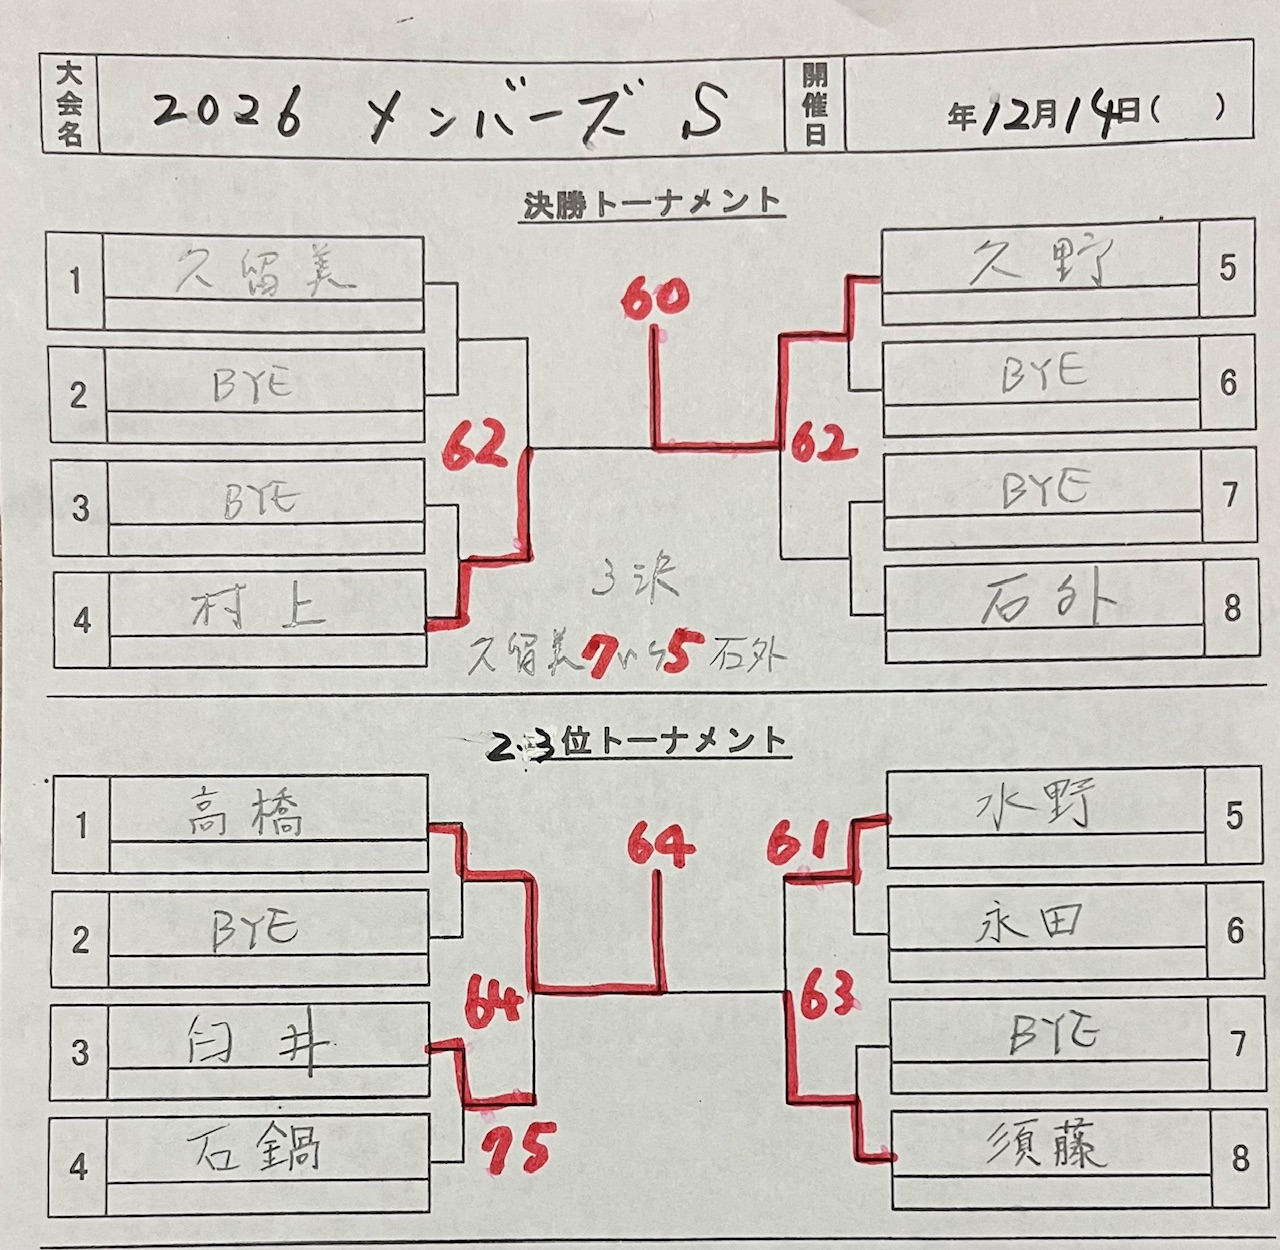 大会名 2026 メンバーズ S 開催日 年12月14日( )
決勝トーナメント
1 久留美 久野 5
60
2 BYE BYE 6
62 62
3 BYE BYE 7
3決
4 村上 石外 8
久留美 7 5 石外
2.3位トーナメント
1 高橋 水野 5
64 61
2 BYE 永田 6
64 63
3 臼井 BYE 7
4 石鍋 須藤 8
75